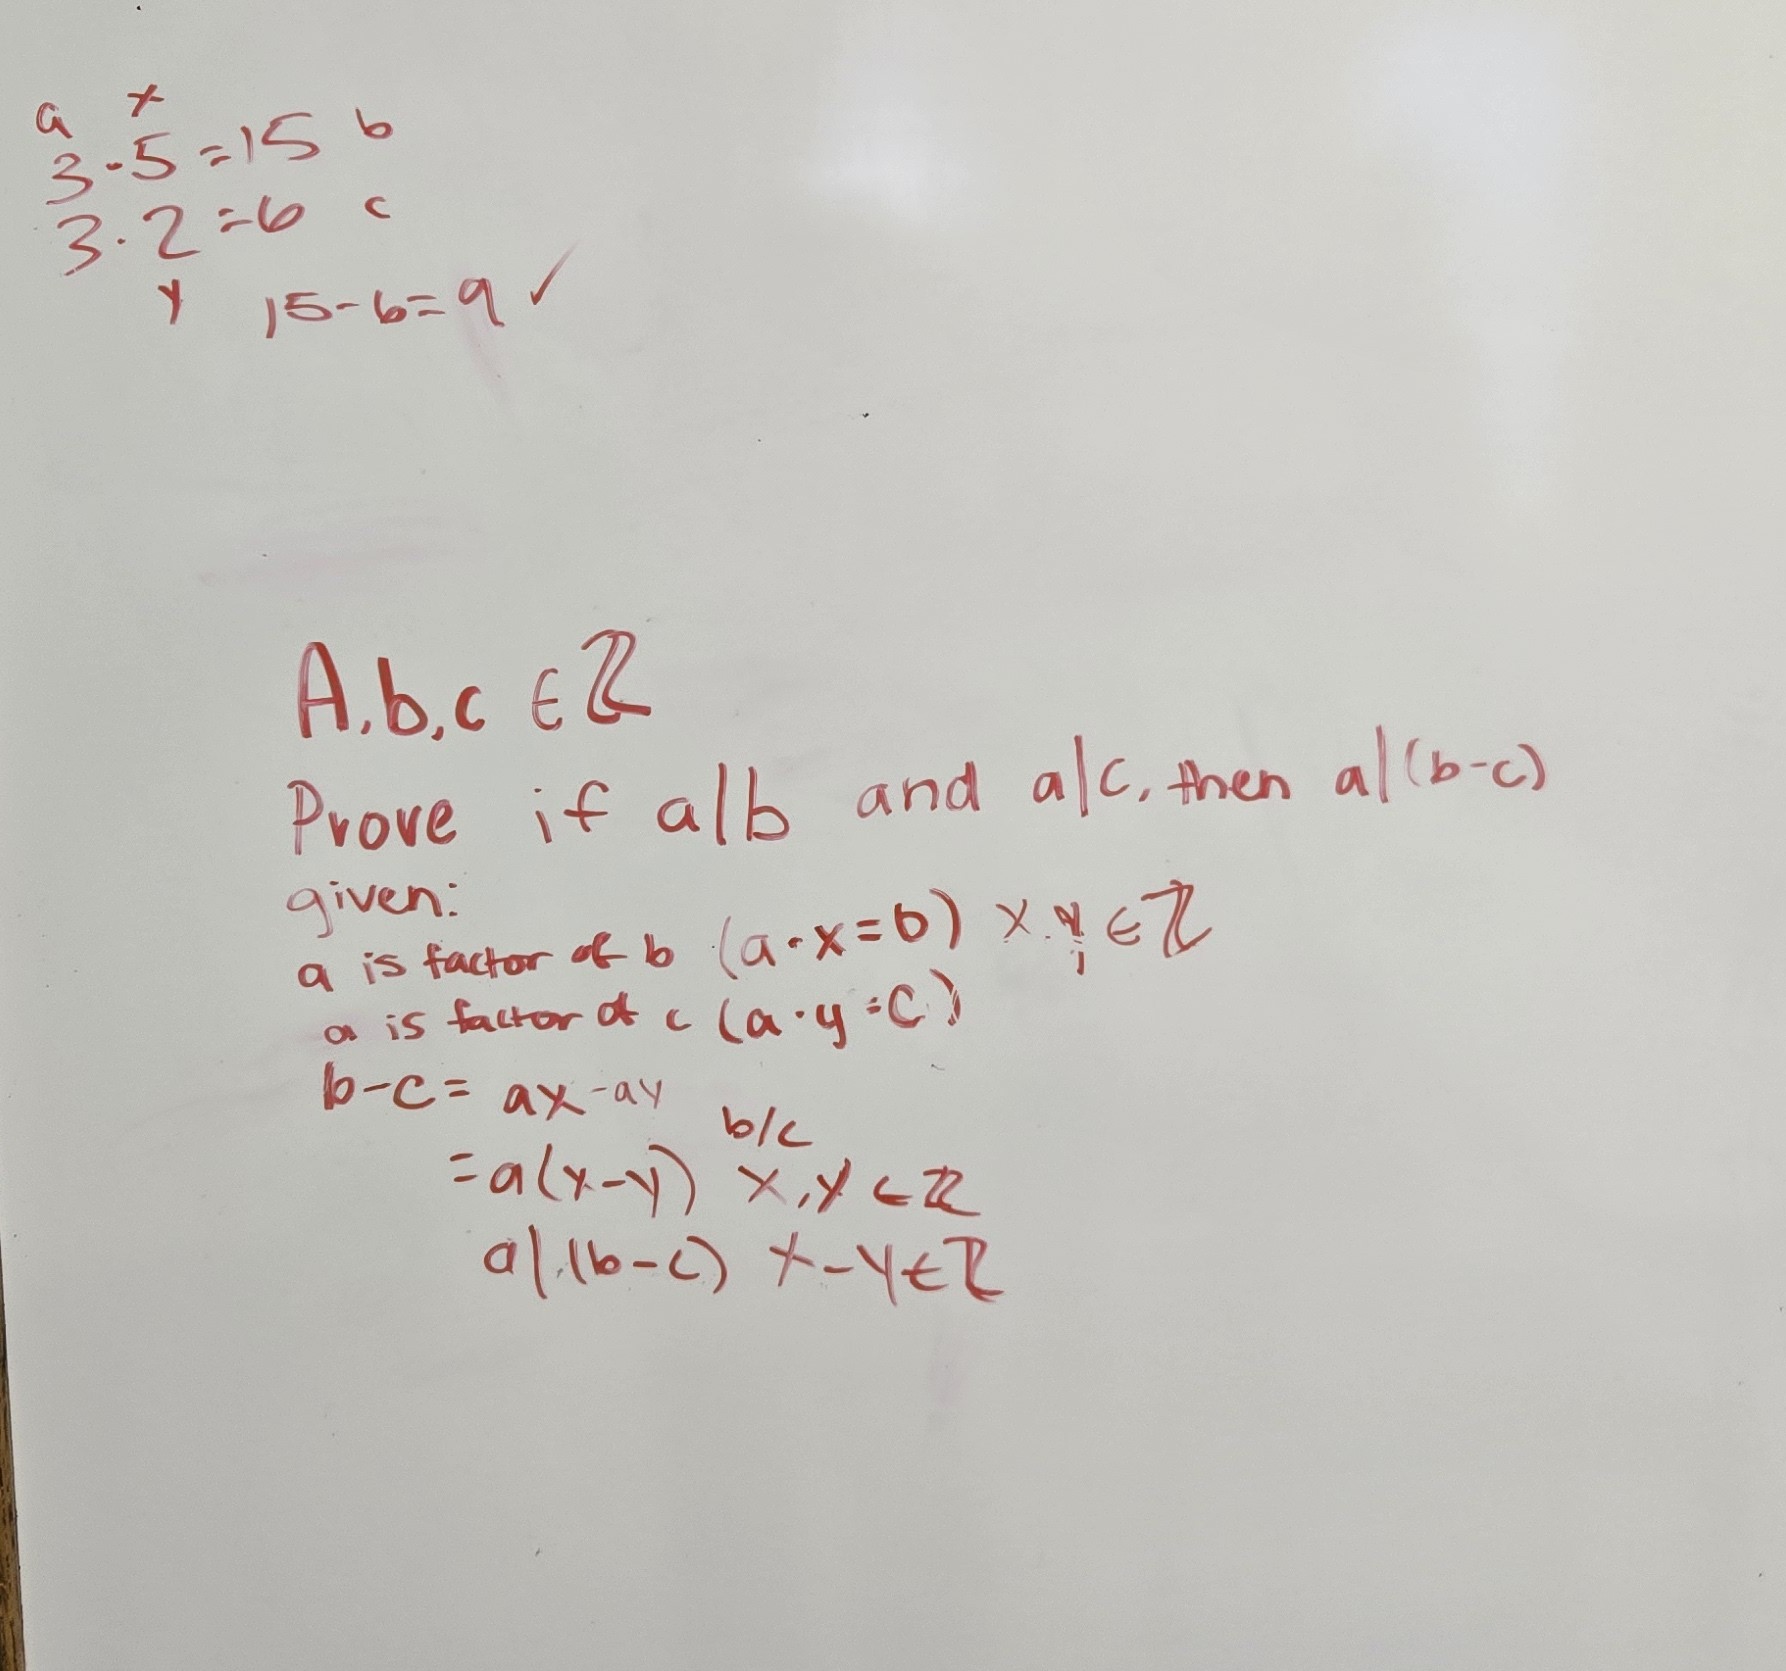 a x
3·5=15 b
3·2=6 c
y 15-6=9 ✓
A,b,c ∈ ℤ
Prove if a|b and a|c, then a|(b-c)
given:
a is factor of b (a·x=b) x,y ∈ ℤ
a is factor of c (a·y=c)
b-c= ax-ay
b/c
=a(x-y) x,y ∈ ℤ
a|(b-c) x-y∈ℤ